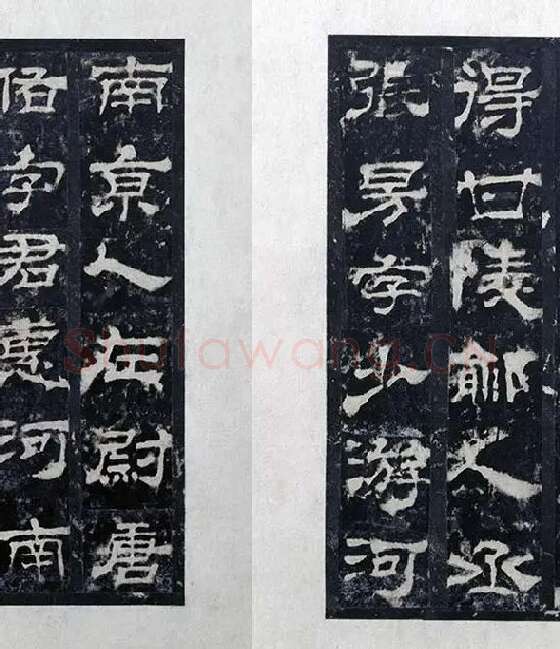 得甘陵鄃人丞
張昉字少游河
南京人左尉唐
佑字君惠河南
Shufawang.CN